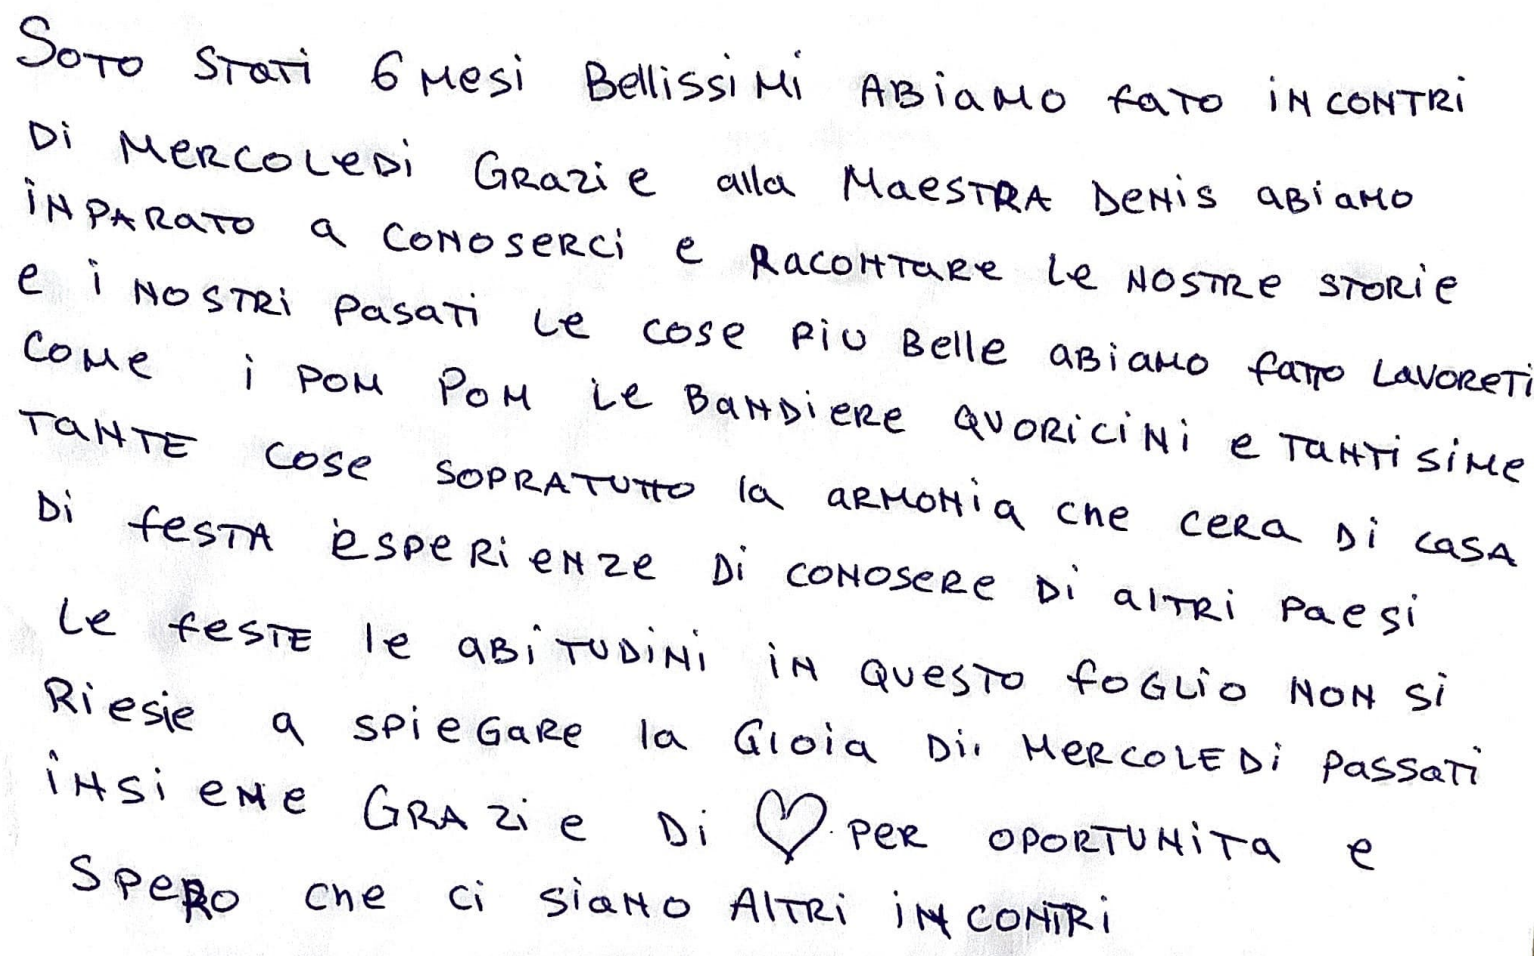 SOTO STATI 6 MESI BELLISSIMI ABIAMO FATO INCONTRI
DI MERCOLEDI GRAZIE alla MAESTRA DENIS ABIAMO
INPARATO A CONOSERCI E RACONTARE LE NOSTRE STORIE
E I NOSTRI PASATI LE COSE PIU BELLE ABIAMO FATTO LAVORETI
COME I POM POM LE BANDIERE QUORICINI E TANTISIME
TANTE COSE SOPRATUTTO la ARMONIA CHE CERA DI CASA
DI FESTA ESPERIENZE DI CONOSERE DI ALTRI PAESI
LE FESTE le ABITUDINI IN QUESTO FOGLIO NON SI
RIESIE A SPIEGARE la GIOIA DI MERCOLEDI PASSATI
INSIEME GRAZIE DI ♡ PER OPORTUNITA E
SPERO CHE CI SIANO ALTRI INCONTRI